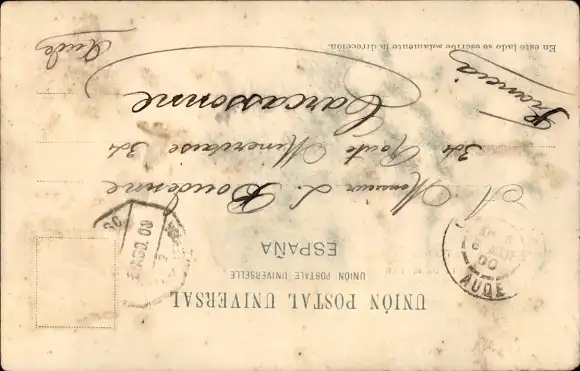 UNIÓN POSTAL UNIVERSAL
UNIÓN POSTALE UNIVERSELLE
ESPAÑA
AGO 00
00
AUDE
A Monsieur L.
34 Route Minervoise 34
Carcassonne
Francia
Aude
En este lado se escribe solamente la dirección.